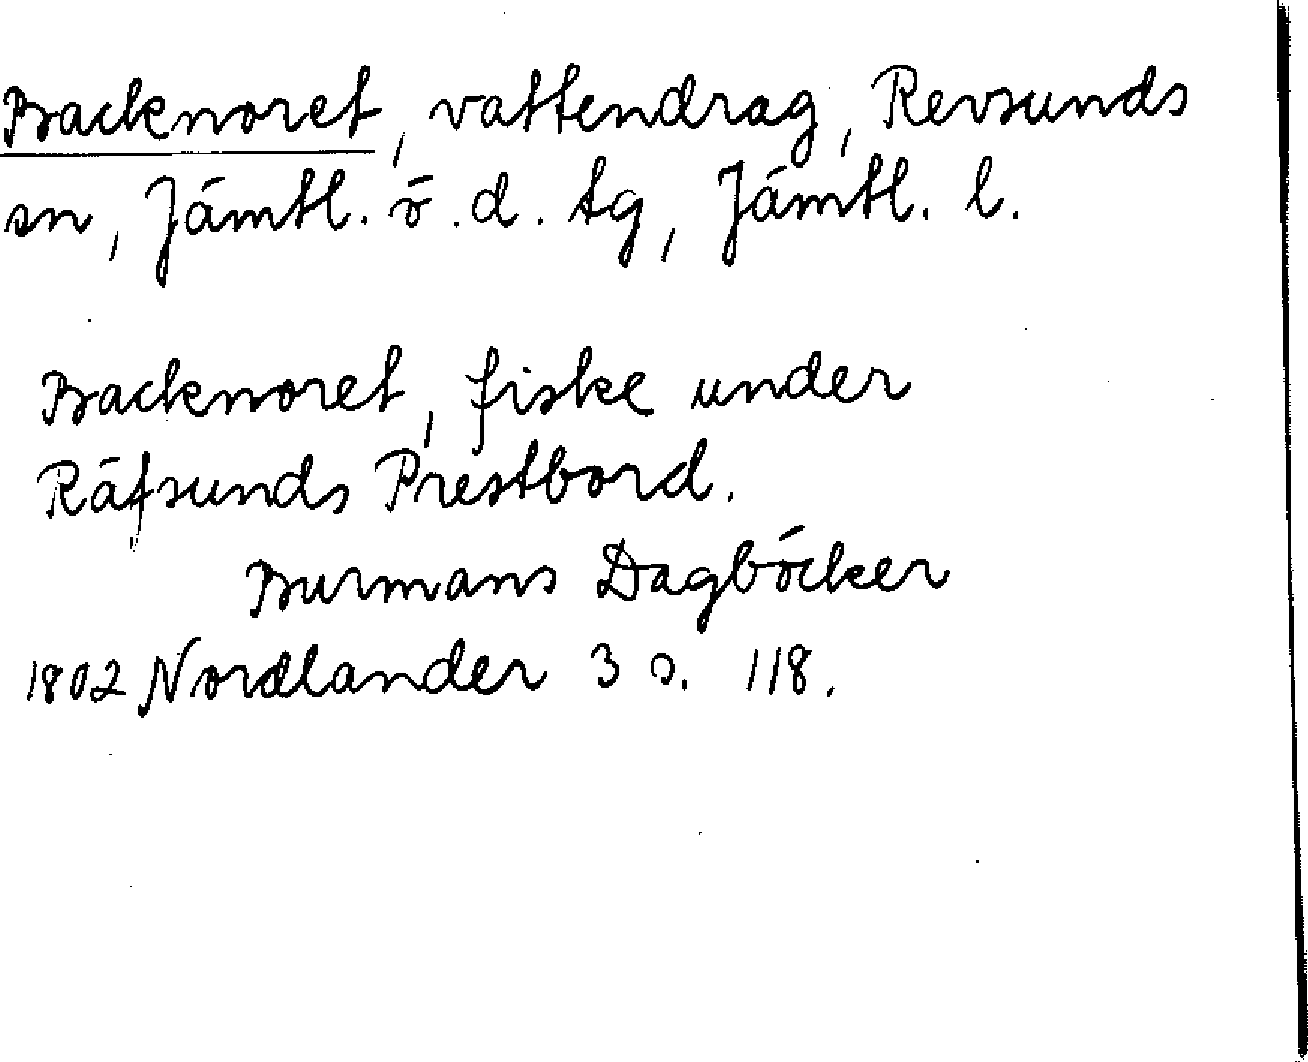 Backnoret, vattendrag, Revsunds
sn, Jämtl. ö. d. tg, Jämtl. l.
Backnoret, fiske under
Räfsunds Prestbord.
Burmans Dagböcker
1802 Nordlander 3 s. 118.